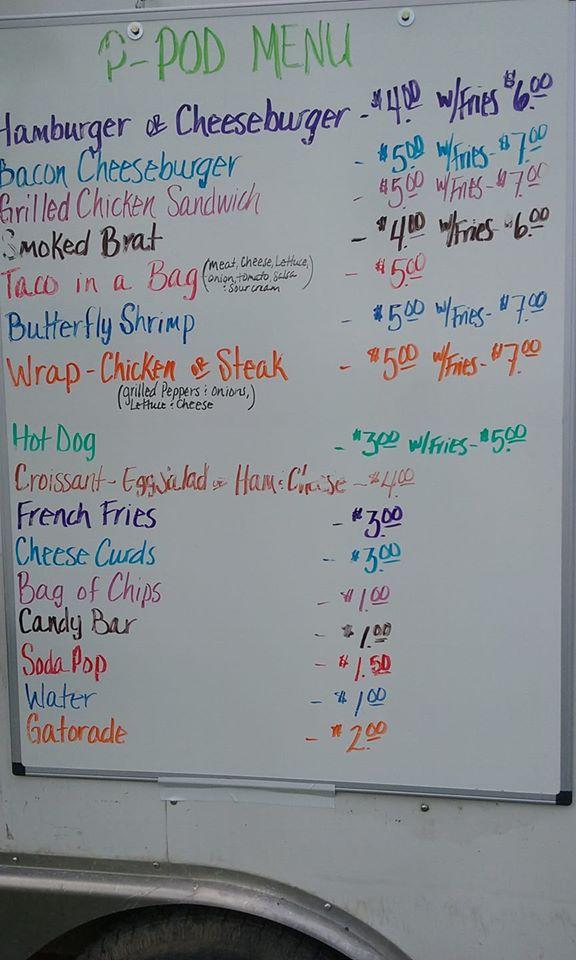 P-POD MENU
Hamburger or Cheeseburger - $4.00 w/Fries $6.00
Bacon Cheeseburger - $5.00 w/Fries- $7.00
Grilled Chicken Sandwich - $5.00 w/Fries- $7.00
Smoked Brat - $4.00 w/Fries- $6.00
Taco in a Bag (meat, cheese, Lettuce, - $5.00
onion, tomato, salsa
& sour cream)
Butterfly Shrimp - $5.00 w/Fries- $7.00
Wrap - Chicken or Steak - $5.00 w/Fries- $7.00
(grilled Peppers & onions,
Lettuce & Cheese)
Hot Dog - $3.00 w/Fries- $5.00
Croissant- Eggsalad or Ham & Cheese - $4.00
French Fries - $3.00
Cheese Curds - $3.00
Bag of Chips - $1.00
Candy Bar - $1.00
Soda Pop - $1.50
Water - $1.00
Gatorade - $2.00